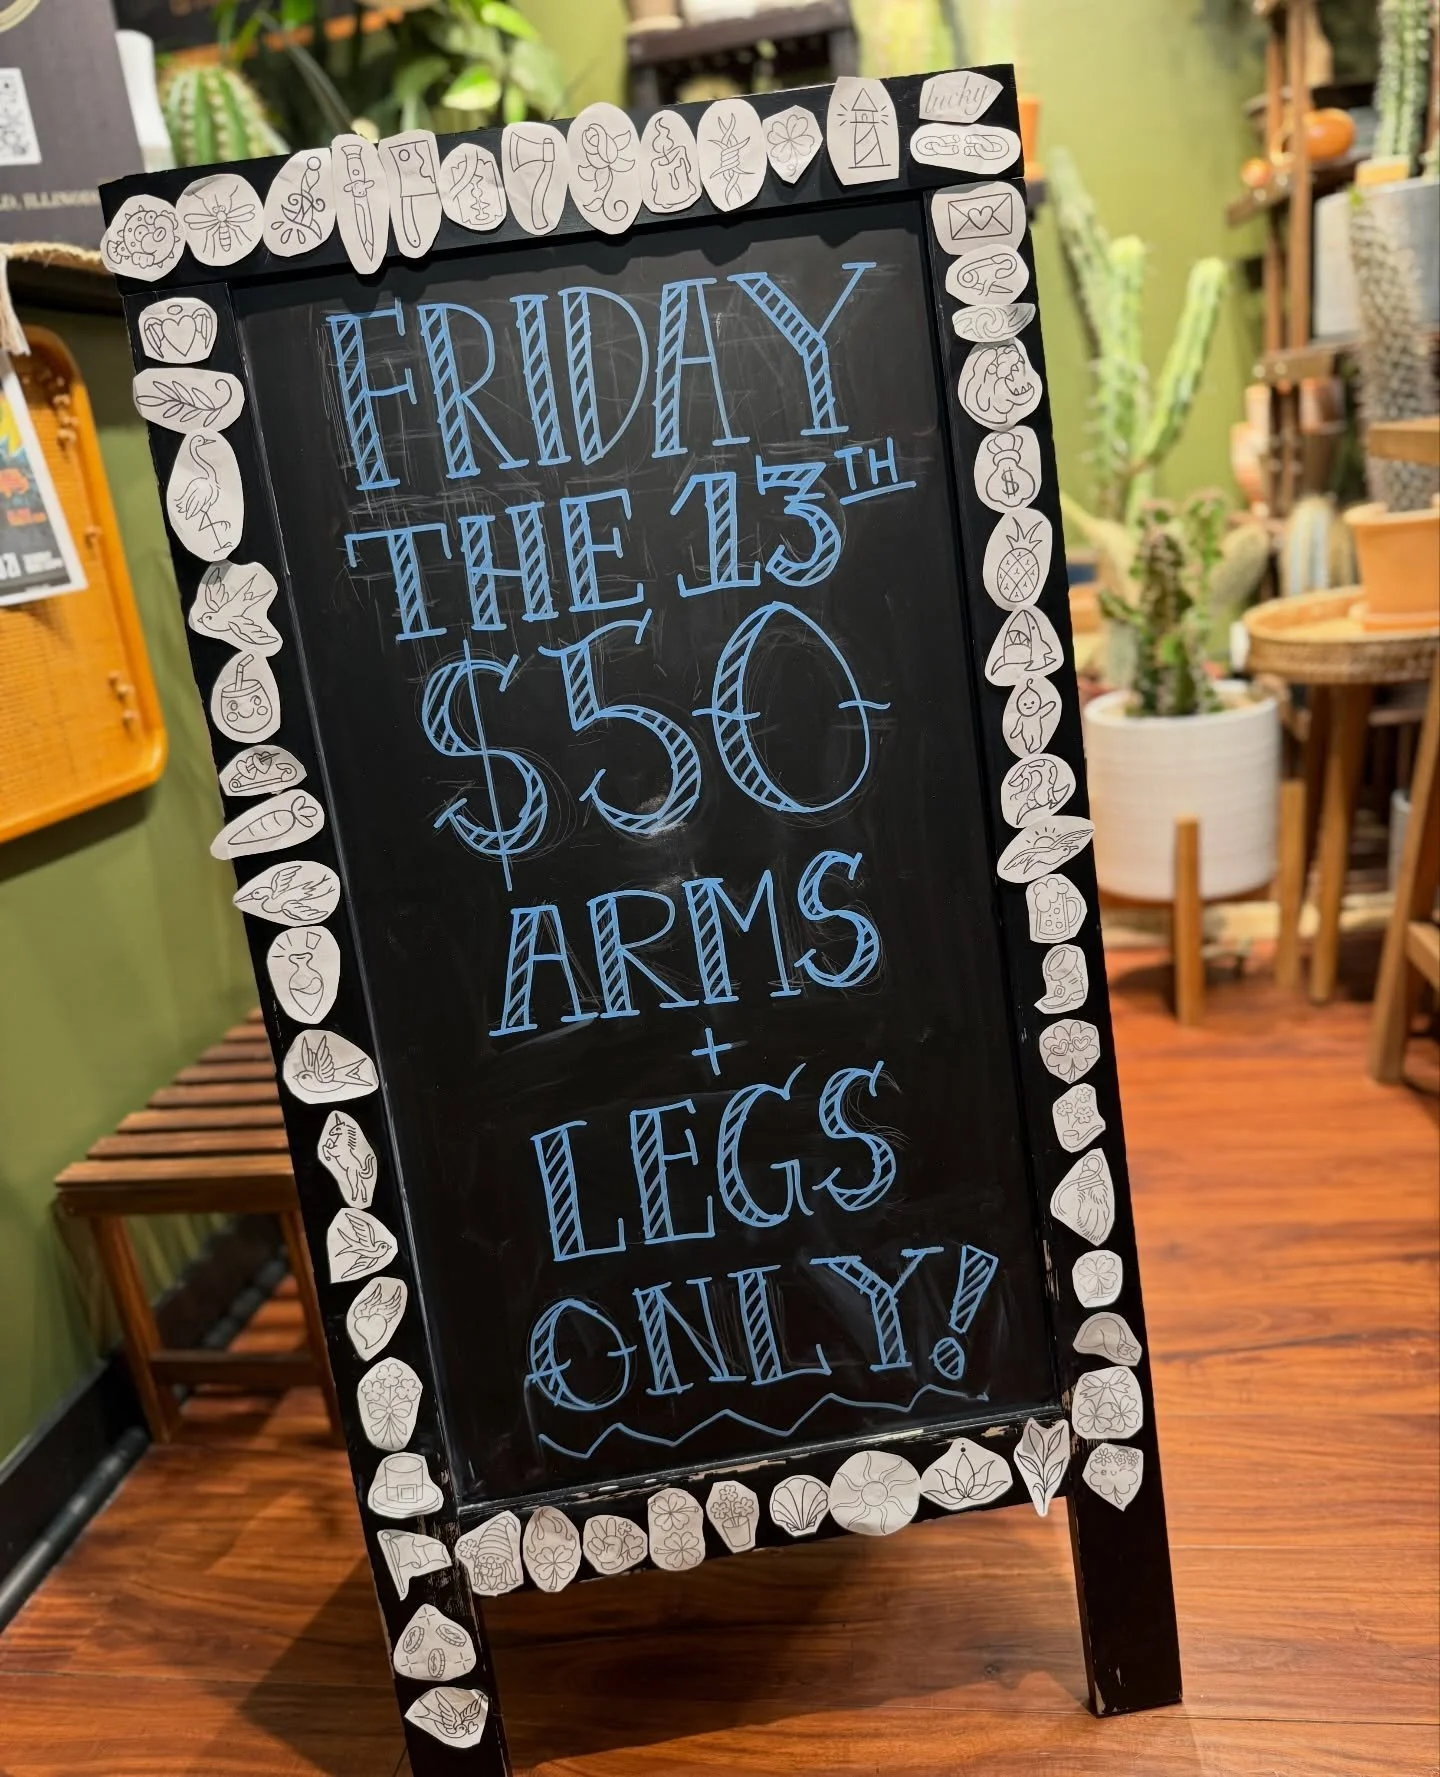 lucky
FRIDAY
THE 13TH
$50
ARMS
+
LEGS
ONLY!